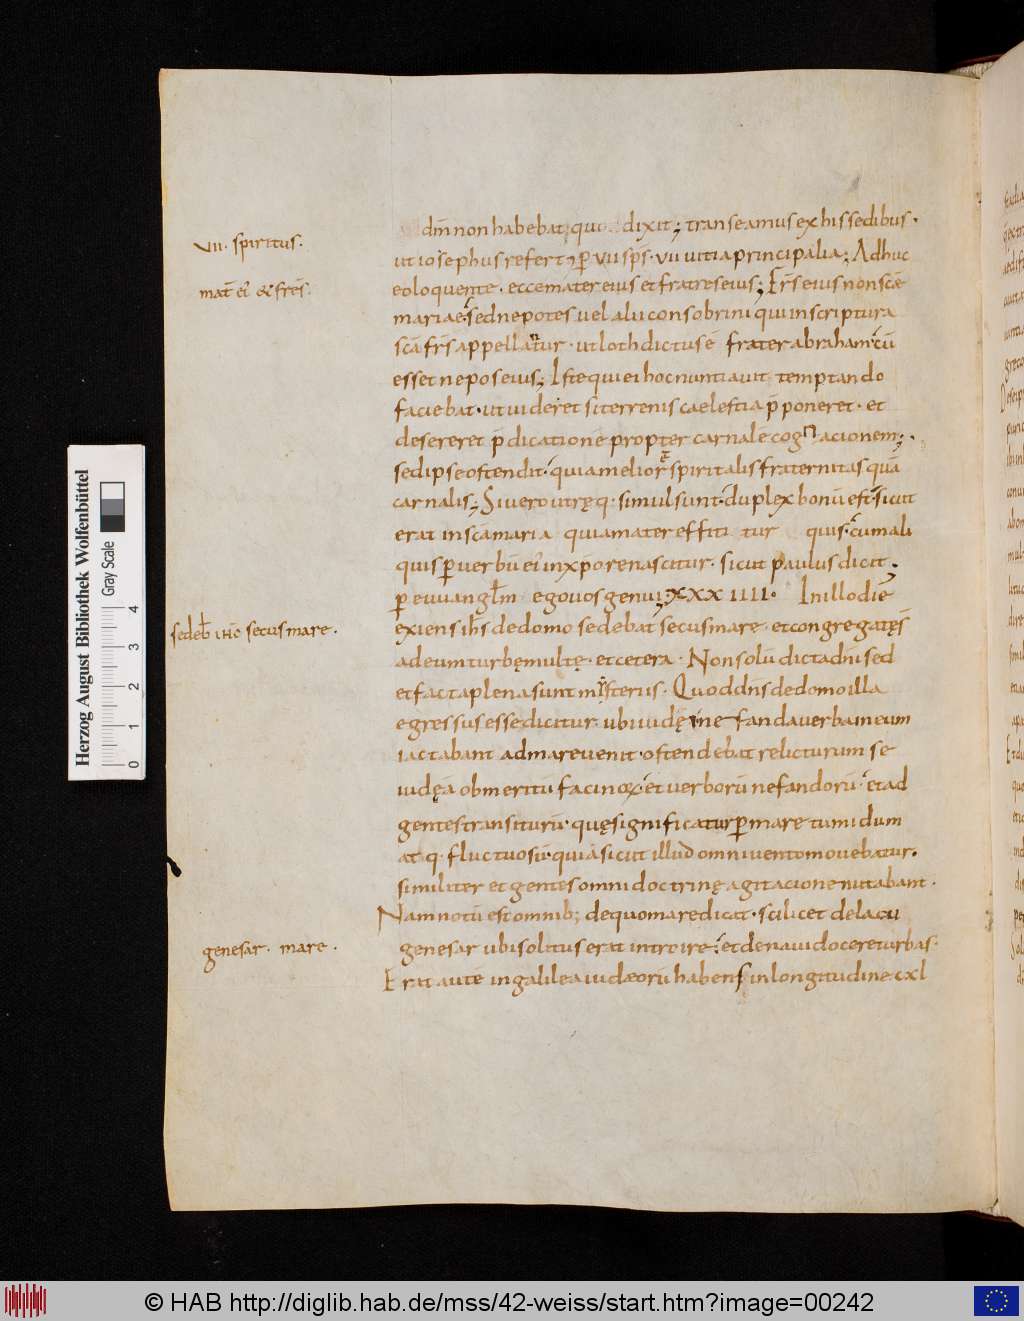 dm̄ non habebat, dixit; transeamus ex his sedibus.
ut iosephus refert p̱ VII sp̄s. VII uitia principalia; Adhuc
eo loquente. ecce mater eius et fratres eius; Fr̄s eius non scē
mariae. sed nepotes uel alii consobrini qui in scriptura
scā fr̄s appellatur. ut loth dictus ē frater abraham. cū
esset nepos eius; Iste qui ei hoc nuntiauit temptando
faciebat. ut uideret si terrenis caelestia p̄poneret. et
desereret p̄dicationē propter carnalē cognacionem;
sed ipse ostendit. quia melior ē spiritalis fraternitas quā
carnalis; Si uero utręq. simul sunt. duplex bonū est. sicut
erat in scā maria quia mater effititur quis. cum ali
quis p̱ uerbū ei in xp̄o renascitur. sicut paulus dicit,
p̱ euuangl̄m ego uos genui; XXXIIII. In illo die
exiens ih̄s de domo sedebat secus mare. et congregatę s̄
ad eum turbę multę. et cetera. Non solū dicta dn̄i sed
et facta plena sunt misteriis. Quod dn̄s de domo illa
egressus esse dicitur ubi iudęi nefanda uerba in eum
iactabant ad mare uenit. ostendebat relicturum se
iudęā ob meritū facinoꝝ. et uerborū nefandorū. et ad
gentes transiturū. quę significatur p̱ mare tumidum
at q. fluctuosū. quia sicut illud omni uento mouebatur.
similiter et gentes omni doctrinę agitacione nutabant.
Nam notū est omnib; de quo mare dicat. scilicet de lacu
genesar ubi solitus erat introire. et de naui docere turbas.
Erat aute in galilea iudæorū habens in longitudine cxl
VII. spiritus.
mat̄ ei' & fr̄es.
sedeb̄ iħc secus mare.
genesar. mare.
Herzog August Bibliothek Wolfenbüttel
Gray Scale
0 1 2 3 4
© HAB http://diglib.hab.de/mss/42-weiss/start.htm?image=00242